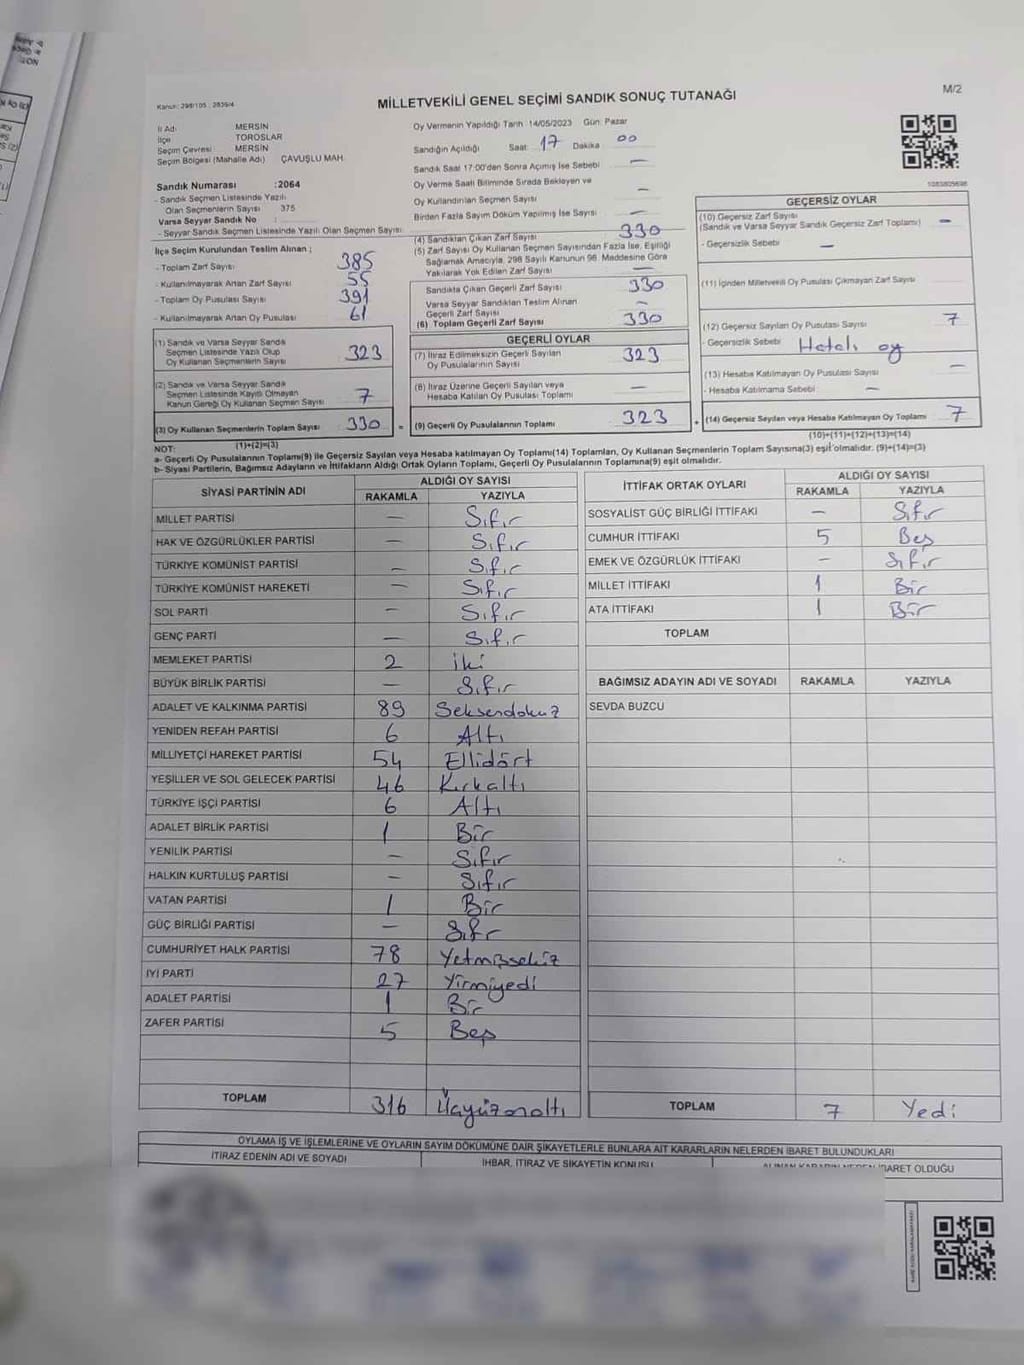 Kanun: 298/105 : 2839/4
MİLLETVEKİLİ GENEL SEÇİMİ SANDIK SONUÇ TUTANAĞI
M/2
İl Adı MERSİN
İlçe TOROSLAR
Seçim Çevresi MERSİN
Seçim Bölgesi (Mahalle Adı) ÇAVUŞLU MAH.
Sandık Numarası :2064
- Sandık Seçmen Listesinde Yazılı
Olan Seçmenlerin Sayısı 375
Varsa Seyyar Sandık No :
- Seyyar Sandık Seçmen Listesinde Yazılı Olan Seçmen Sayısı
Oy Vermenin Yapıldığı Tarih :14/05/2023 Gün: Pazar
Sandığın Açıldığı Saat: 17 Dakika 00
Sandık Saat 17:00'den Sonra Açılmış İse Sebebi —
Oy Verme Saati Bitiminde Sırada Bekleyen ve
Oy Kullandırılan Seçmen Sayısı —
Birden Fazla Sayım Döküm Yapılmış İse Sayısı —
İlçe Seçim Kurulundan Teslim Alınan ;
- Toplam Zarf Sayısı 385
- Kullanılmayarak Artan Zarf Sayısı 55
- Toplam Oy Pusulası Sayısı 391
- Kullanılmayarak Artan Oy Pusulası 61
(1) Sandık ve Varsa Seyyar Sandık
Seçmen Listesinde Yazılı Olup
Oy Kullanan Seçmenlerin Sayısı 323
(2) Sandık ve Varsa Seyyar Sandık
Seçmen Listesinde Kayıtlı Olmayan
Kanun Gereği Oy Kullanan Seçmen Sayısı 7
(3) Oy Kullanan Seçmenlerin Toplam Sayısı 330
(1)+(2)=(3)
(4) Sandıktan Çıkan Zarf Sayısı 330
(5) Zarf Sayısı Oy Kullanan Seçmen Sayısından Fazla İse, Eşitliği
Sağlamak Amacıyla, 298 Sayılı Kanunun 98. Maddesine Göre
Yakılarak Yok Edilen Zarf Sayısı —
Sandıkta Çıkan Geçerli Zarf Sayısı 330
Varsa Seyyar Sandıktan Teslim Alınan
Geçerli Zarf Sayısı —
(6) Toplam Geçerli Zarf Sayısı 330
GEÇERLİ OYLAR
(7) İtiraz Edilmeksizin Geçerli Sayılan
Oy Pusulalarının Sayısı 323
(8) İtiraz Üzerine Geçerli Sayılan veya
Hesaba Katılan Oy Pusulası Toplamı —
= (9) Geçerli Oy Pusulalarının Toplamı 323
GEÇERSİZ OYLAR
(10) Geçersiz Zarf Sayısı
(Sandık ve Varsa Seyyar Sandık Geçersiz Zarf Toplamı) —
- Geçersizlik Sebebi —
(11) İçinden Milletvekili Oy Pusulası Çıkmayan Zarf Sayısı
(12) Geçersiz Sayılan Oy Pusulası Sayısı 7
- Geçersizlik Sebebi Hatalı oy
(13) Hesaba Katılmayan Oy Pusulası Sayısı —
- Hesaba Katılmama Sebebi —
+ (14) Geçersiz Sayılan veya Hesaba Katılmayan Oy Toplamı 7
(10)+(11)+(12)+(13)=(14)
NOT:
a- Geçerli Oy Pusulalarının Toplamı(9) ile Geçersiz Sayılan veya Hesaba katılmayan Oy Toplamı(14) Toplamları, Oy Kullanan Seçmenlerin Toplam Sayısına(3) eşit olmalıdır. (9)+(14)=(3)
b- Siyasi Partilerin, Bağımsız Adayların ve İttifakların Aldığı Ortak Oyların Toplamı, Geçerli Oy Pusulalarının Toplamına(9) eşit olmalıdır.
SİYASİ PARTİNİN ADI ALDIĞI OY SAYISI
RAKAMLA YAZIYLA
MİLLET PARTİSİ — Sıfır
HAK VE ÖZGÜRLÜKLER PARTİSİ — Sıfır
TÜRKİYE KOMÜNİST PARTİSİ — Sıfır
TÜRKİYE KOMÜNİST HAREKETİ — Sıfır
SOL PARTİ — Sıfır
GENÇ PARTİ — Sıfır
MEMLEKET PARTİSİ 2 iki
BÜYÜK BİRLİK PARTİSİ — Sıfır
ADALET VE KALKINMA PARTİSİ 89 Seksendokuz
YENİDEN REFAH PARTİSİ 6 Altı
MİLLİYETÇİ HAREKET PARTİSİ 54 Ellidört
YEŞİLLER VE SOL GELECEK PARTİSİ 46 Kırkaltı
TÜRKİYE İŞÇİ PARTİSİ 6 Altı
ADALET BİRLİK PARTİSİ 1 Bir
YENİLİK PARTİSİ — Sıfır
HALKIN KURTULUŞ PARTİSİ — Sıfır
VATAN PARTİSİ 1 Bir
GÜÇ BİRLİĞİ PARTİSİ — Sıfr
CUMHURİYET HALK PARTİSİ 78 Yetmişsekiz
İYİ PARTİ 27 Yirmiyedi
ADALET PARTİSİ 1 Bir
ZAFER PARTİSİ 5 Beş
TOPLAM 316 Üçyüzonaltı
İTTİFAK ORTAK OYLARI ALDIĞI OY SAYISI
RAKAMLA YAZIYLA
SOSYALİST GÜÇ BİRLİĞİ İTTİFAKI — Sıfır
CUMHUR İTTİFAKI 5 Beş
EMEK VE ÖZGÜRLÜK İTTİFAKI — Sıfır
MİLLET İTTİFAKI 1 Bir
ATA İTTİFAKI 1 Bir
TOPLAM
BAĞIMSIZ ADAYIN ADI VE SOYADI RAKAMLA YAZIYLA
SEVDA BUZCU
TOPLAM 7 Yedi
OYLAMA İŞ VE İŞLEMLERİNE VE OYLARIN SAYIM DÖKÜMÜNE DAİR ŞİKAYETLERLE BUNLARA AİT KARARLARIN NELERDEN İBARET BULUNDUKLARI
İTİRAZ EDENİN ADI VE SOYADI İHBAR, İTİRAZ VE ŞİKAYETİN KONUSU ALINAN KARARIN NEDEN İBARET OLDUĞU